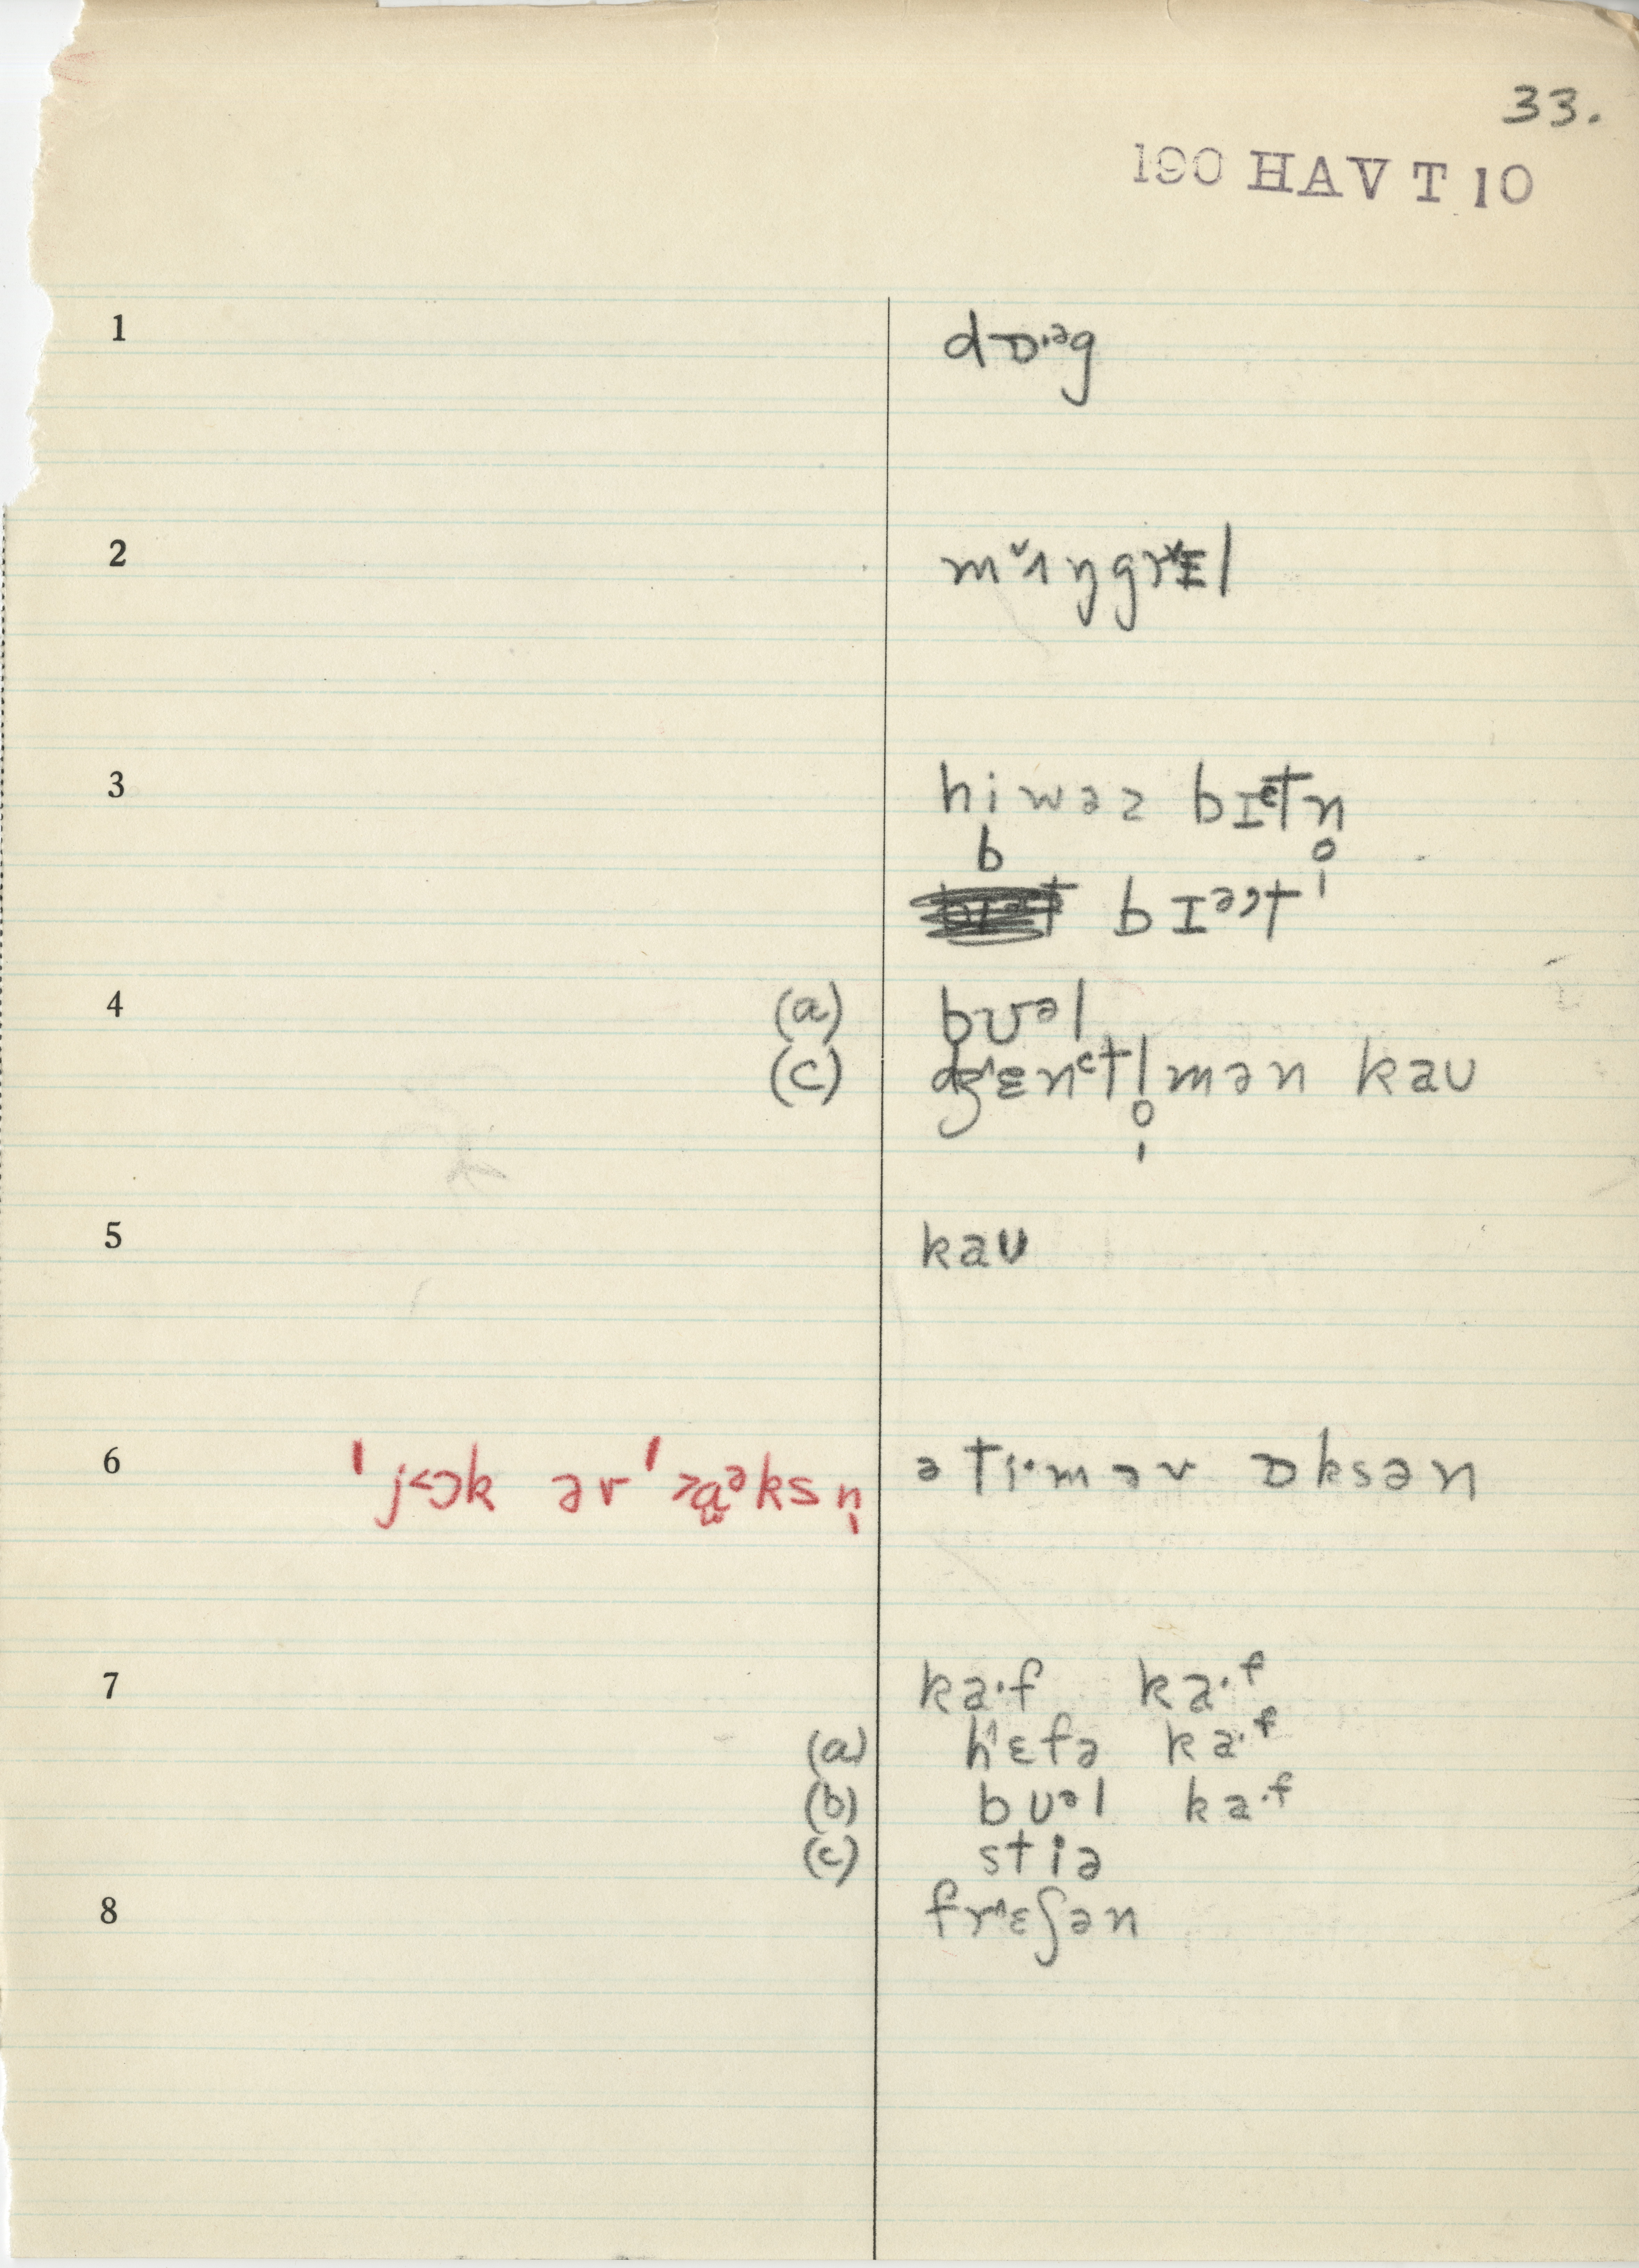 33.
190 HAV T 10
1 dɒ·ᵊg
2 mʌ̌ŋgrɪ̌l
3 hiwəz bɪᵊt̬n̩
b
bɪᵊt̬
4 (a) bʊᵊl
(c) dʒ˄ɛnt̬l̩mən kaʊ
5 kaʊ
6 ˈj˂ɔk ər ˈ˃ɑᵊksn̩ ə ti·mər ɒksən
7 ka·f ka·ᶠ
(a) h˄ɛfə ka·ᶠ
(b) bʊᵊl ka·ᶠ
(c) stiə
8 fr˄ɛʃən